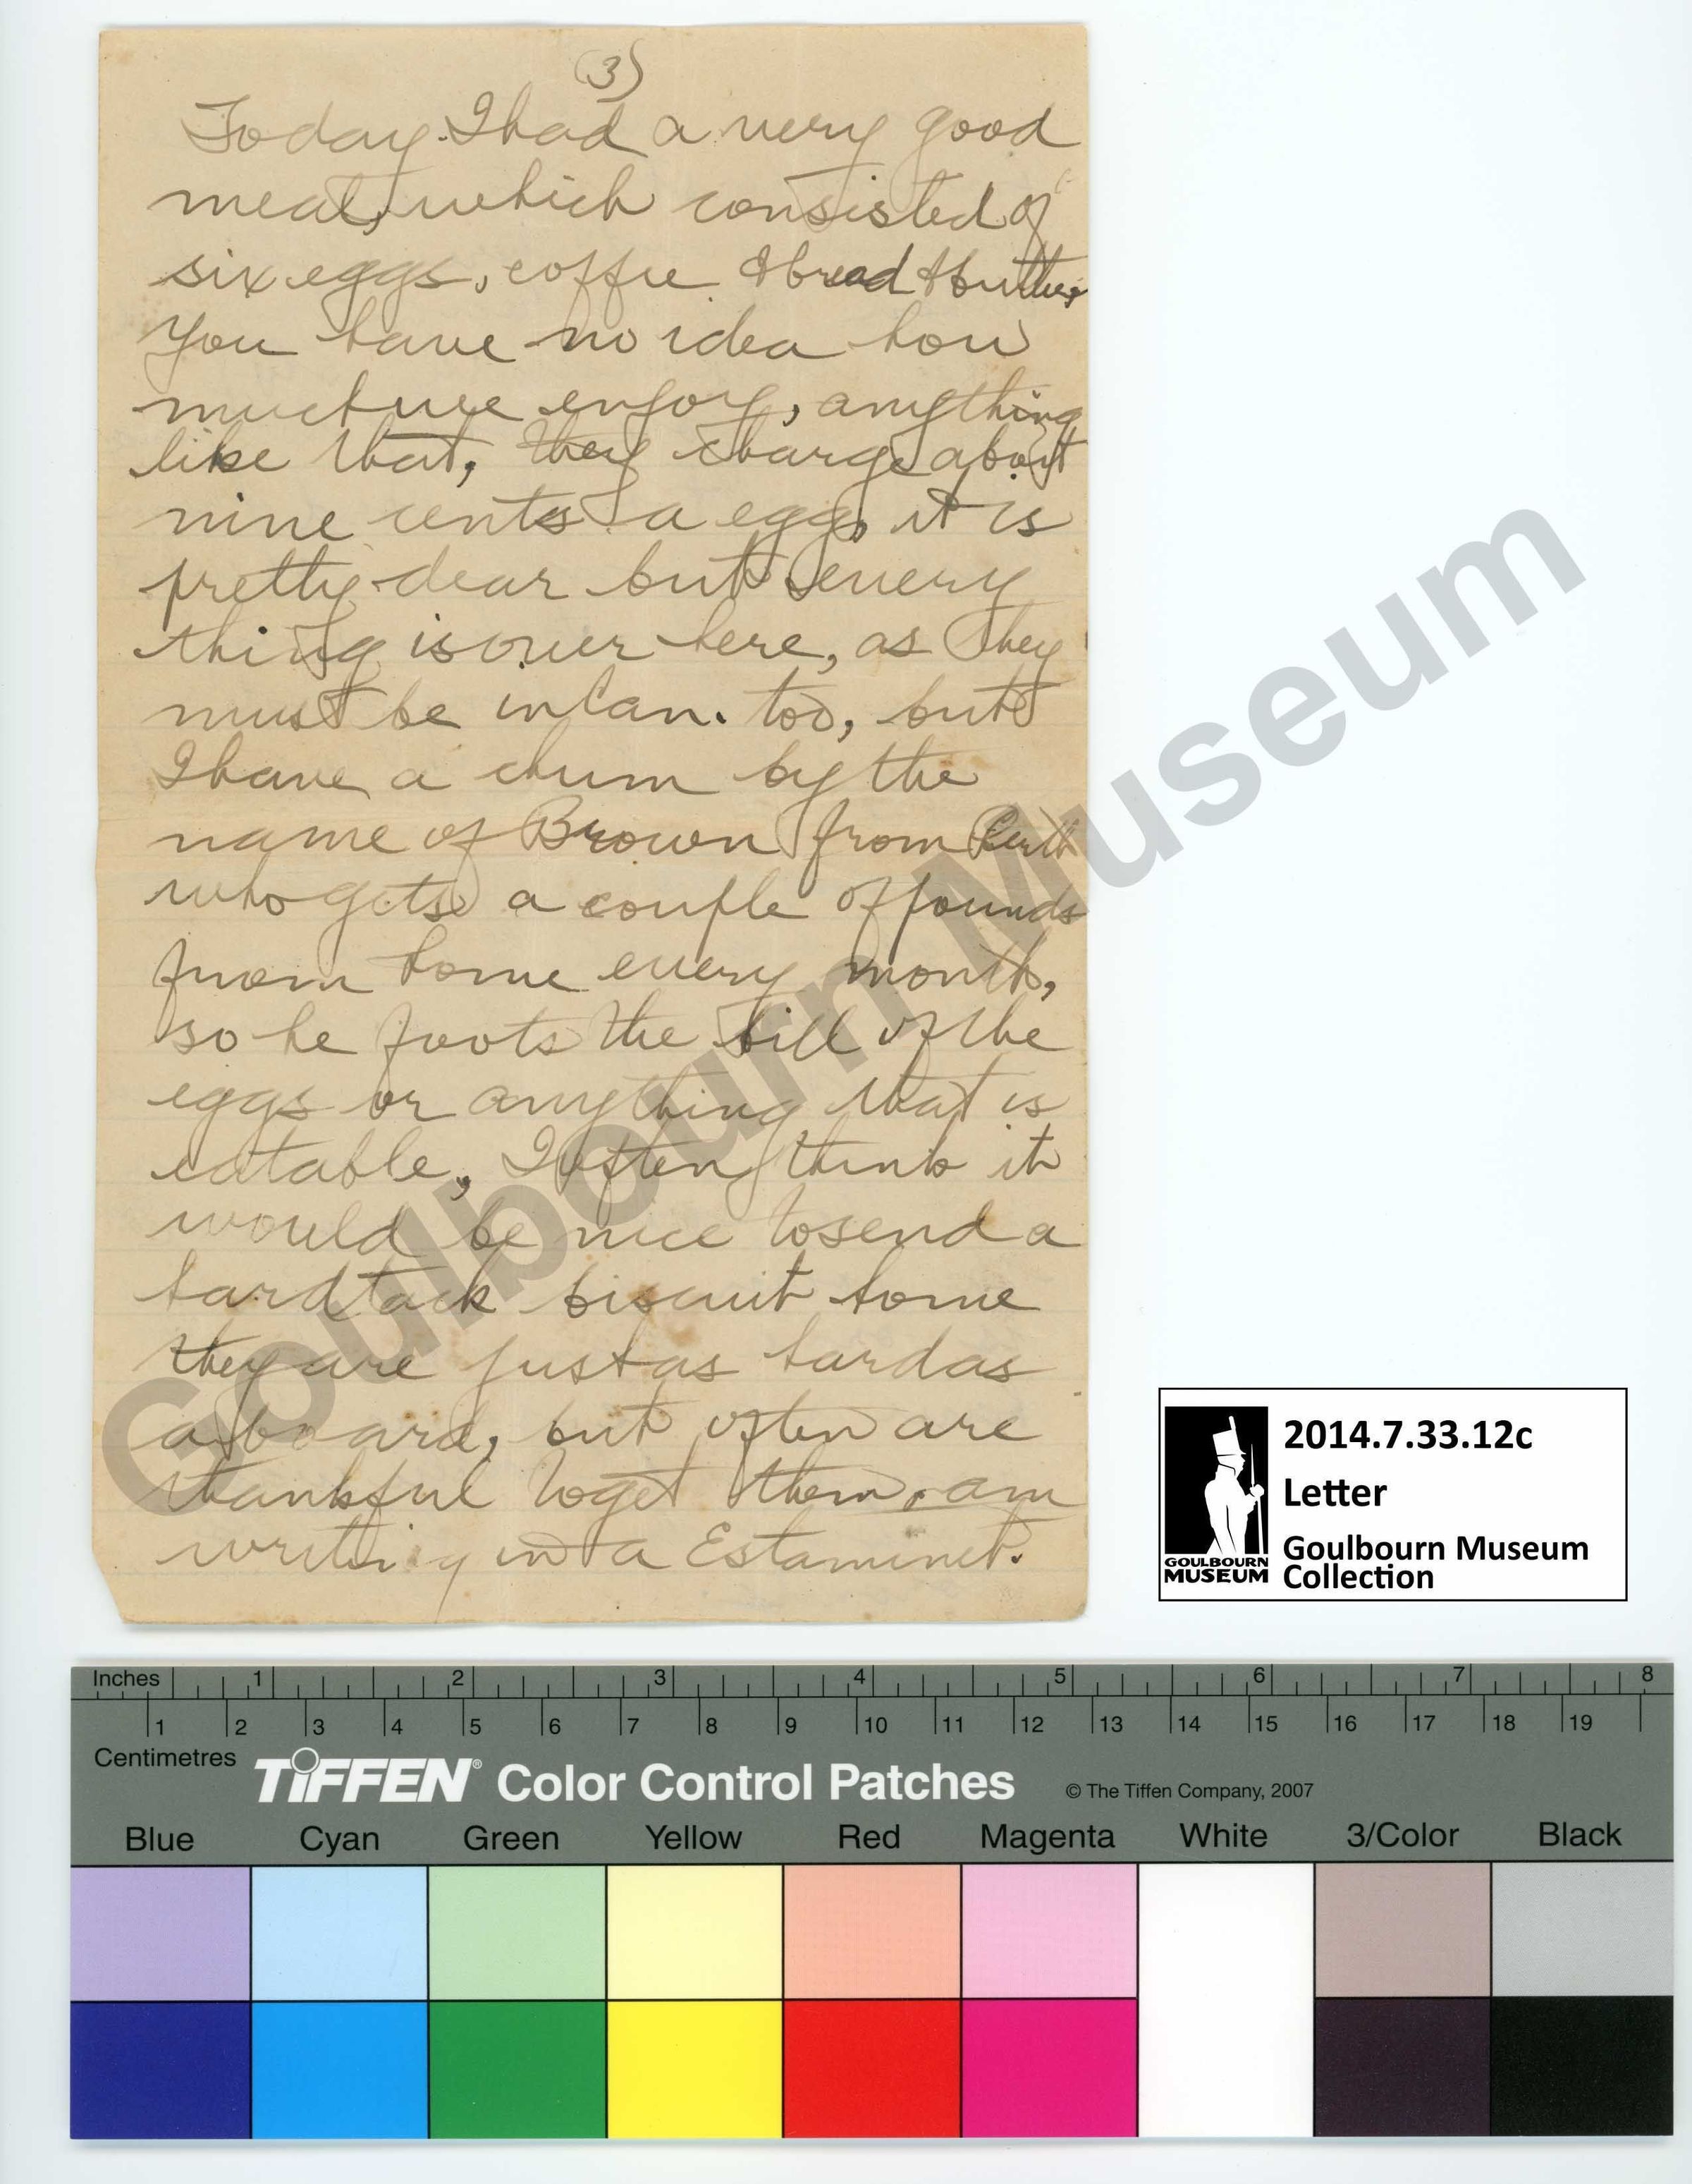 (3)
Today I had a very good
meal, which consisted of
six eggs, coffee & bread & butter,
You have no idea how
much we enjoy, anything
like that, they charge about
nine cents a egg, it is
pretty dear but every
thing is over here, as they
must be in Can. too, but
I have a chum by the
name of Brown from Perth
who gets a couple of pounds
from home every month,
so he foots the bill of the
eggs or anything that is
eatable, I often think it
would be nice to send a
hardtack biscuit home
they are just as hard as
a board, but often are
thankful to get them, am
writing in a Estaminet.
Goulbourn Museum
2014.7.33.12c
Letter
Goulbourn Museum
Collection
GOULBOURN
MUSEUM
Inches 1 2 3 4 5 6 7 8
1 2 3 4 5 6 7 8 9 10 11 12 13 14 15 16 17 18 19
Centimetres
TIFFEN® Color Control Patches © The Tiffen Company, 2007
Blue Cyan Green Yellow Red Magenta White 3/Color Black